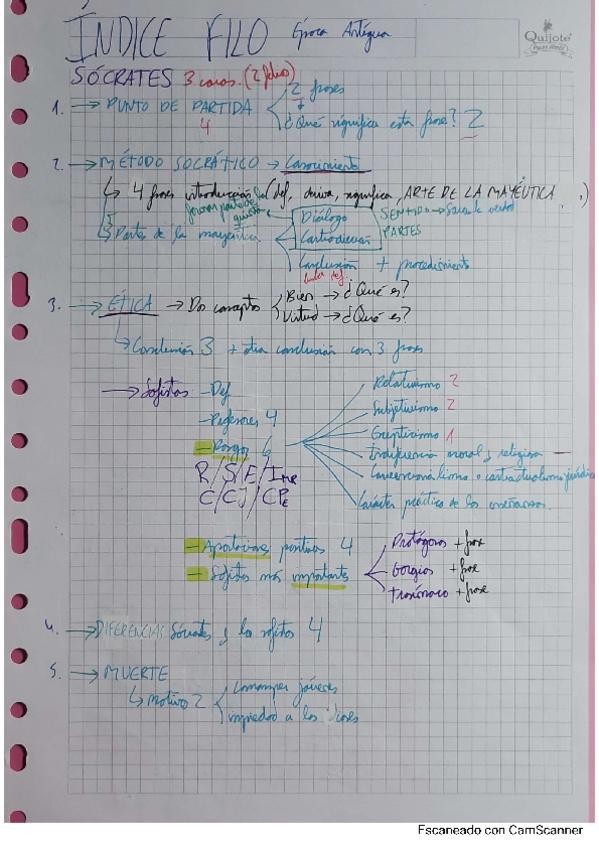 ÍNDICE FILO Época Antigua
Quijote
SÓCRATES 3 caras. (2 folios)
1. → PUNTO DE PARTIDA 2 frases
4 ¿Qué significa esta frase? 2
2. → MÉTODO SOCRÁTICO → Conocimiento
↳ 4 frases introducción (def, deriva, significa, ARTE DE LA MAYÉUTICA.)
Diálogo SENTIDO → Sacar la verdad
↳ Partes de la mayéutica Contradicción PARTES
Conclusión + procedimiento
3. → ÉTICA → Dos conceptos Bien → ¿Qué es?
Virtud → ¿Qué es?
↳ Conclusión 3 + otra conclusión con 3 frases
→ Sofistas - Def
Relativismo 2
- Profesores 4
Subjetivismo 2
- Rasgos 6
Escepticismo 1
Indiferencia moral y religiosa —
R/S/E/Imr
Convencionalismo o contractualismo jurídico
C/CJ/CPE
Carácter práctico de las enseñanzas.
- Aportaciones positivas 4
Protágoras + frase
- Sofistas más importantes Gorgias + frase
Trasímaco + frase
4. → DIFERENCIAS Sócrates y los sofistas 4
5. → MUERTE
↳ Motivo 2 Corromper jóvenes
impiedad a los dioses
Escaneado con CamScanner